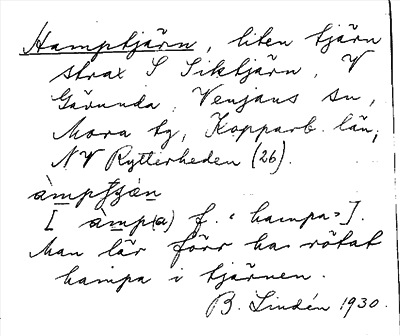 Hamptjärn, liten tjärn
strax S Siktjärn, V
Gärunda, Venjans sn,
Mora tg, Kopparb. län,
NV Rytterheden (26).
àmpʃæ̀n
[ àmp(a) f. "hampa"].
Man lär förr ha rötat
hampa i tjärnen.
B. Lindén 1930.